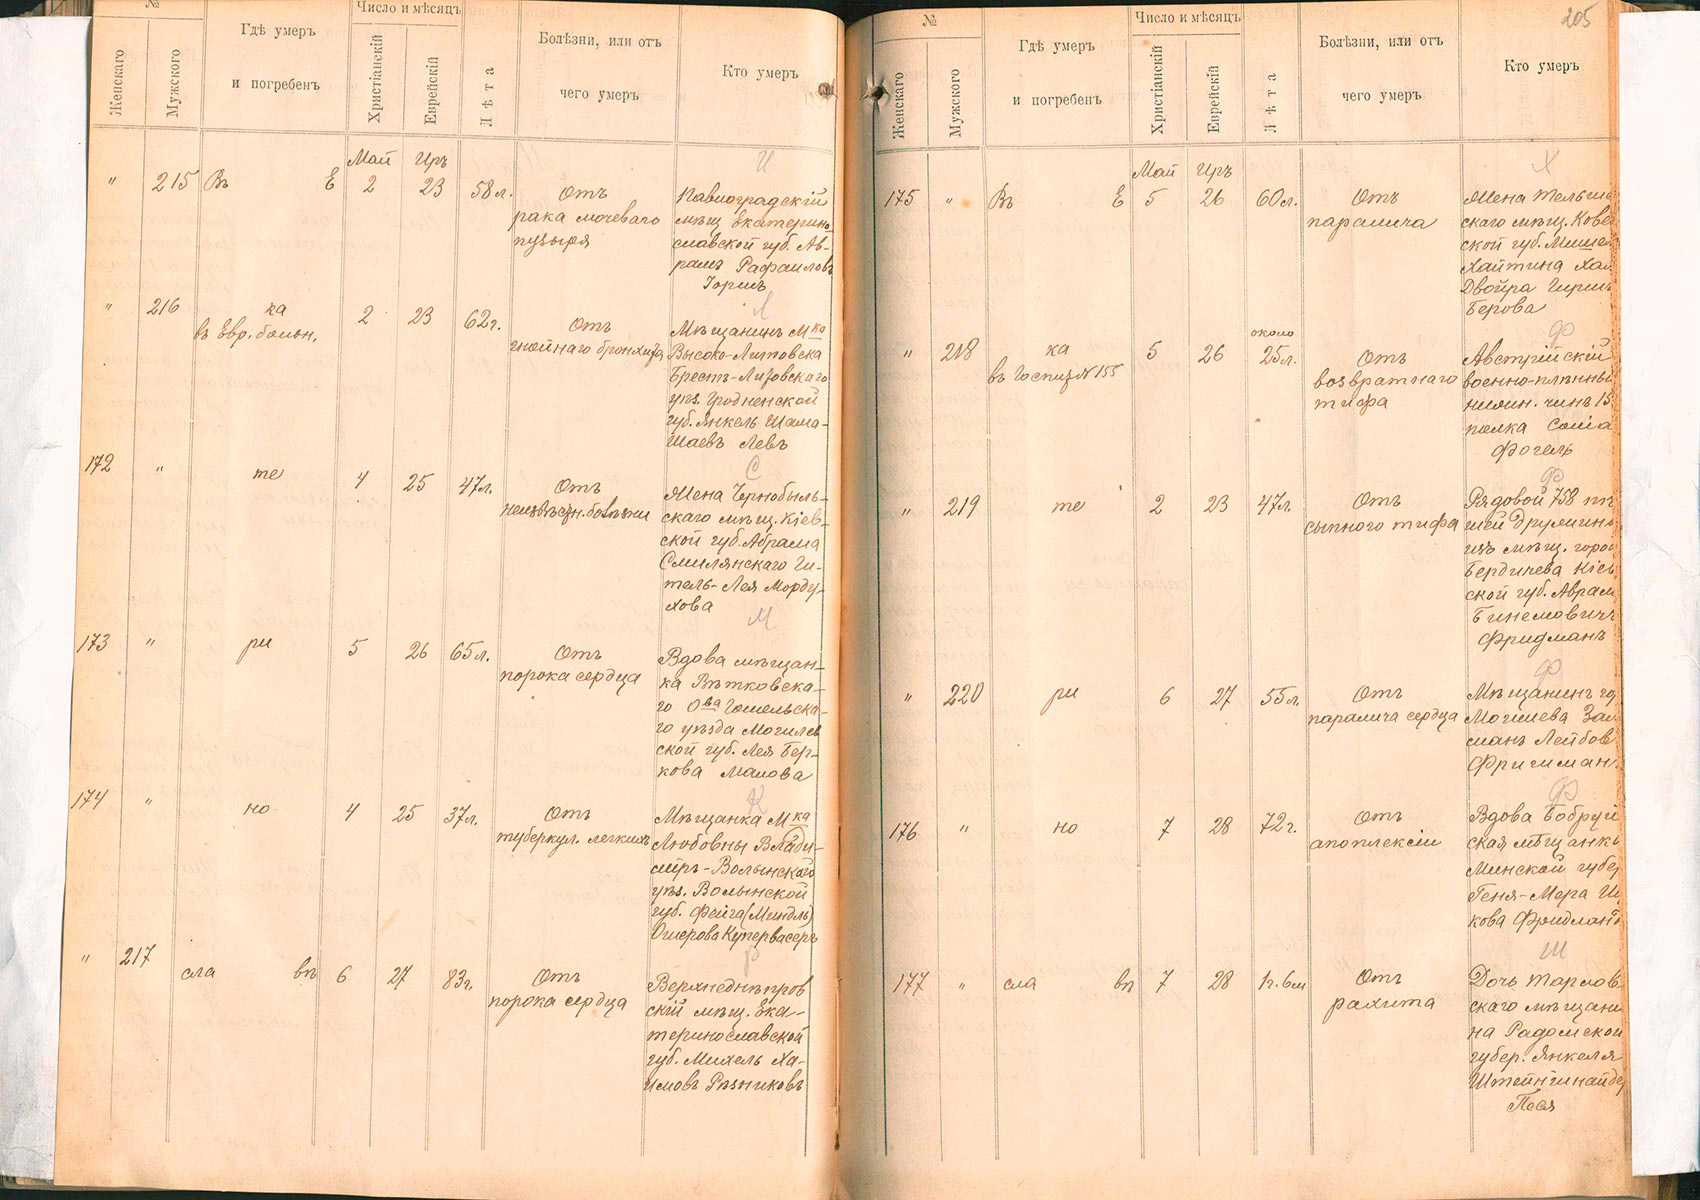 №
Женскаго
Мужского
Гдѣ умеръ
и погребенъ
Число и мѣсяцъ
Христіанскій
Еврейскій
Лѣта
Болѣзни, или отъ
чего умеръ
Кто умеръ
Май Иръ
И
" 215 Въ Е 2 23 58 л.
Отъ
рака мочеваго
пузыря
Павлоградскій
мѣщ. Екатерино-
славской губ. Ав-
рамъ Рафаиловъ
Л
" 216
ка
въ Евр. больн.
2 23 62 г.
Отъ
гнойнаго бронхита
Мѣщанинъ М-ка
Высоко-Литовска
Брестъ-Литовскаго
уѣз. Гродненской
губ. Янкель Шама-
Шаевъ Левъ
С
172 " те 4 25 47 л.
Отъ
неизвѣстн. болѣзни
Жена Чернобыль-
скаго мѣщ. Кіев-
ской губ. Абрама
Смилянскаго Ги-
тель-Лея Морду-
хова
М
173 " ри 5 26 65 л.
Отъ
порока сердца
Вдова мѣщан-
ка Вѣтковска-
го О-ва Гомельска-
го уѣзда Могилев
ской губ. Лея Бер-
кова Малова
К
174 " но 4 25 37 л.
Отъ
туберкул. легкихъ
Мѣщанка М-ка
Любовны Влади-
міръ-Волынскаго
уѣз. Волынской
губ. Фейга (Миндль)
Ошерова Купервасеръ
Р
" 217 сла вѣ 6 27 83 г.
Отъ
порока сердца
Верхнеднѣпров
скій мѣщ. Ека-
теринославской
губ. Михель Ха-
имовъ Рѣзниковъ
205
№
Женскаго
Мужского
Гдѣ умеръ
и погребенъ
Число и мѣсяцъ
Христіанскій
Еврейскій
Лѣта
Болѣзни, или отъ
чего умеръ
Кто умеръ
Май Иръ
Х
175 " Въ Е 5 26 60 л.
Отъ
паралича
Жена Тельше
скаго мѣщ. Кове
ской губ. Мишел
Хайтина Хая
Двойра Гирш
Берова
Ф
" 218
ка
въ Госпиз. № 155
5 26
около
25 л.
Отъ
возвратнаго
тифа
Австрійскій
военно-плѣнный
нижн. чинъ 15
полка Соліа
Фогель
Ф
" 219 те 2 23 47 л.
Отъ
сыпного тифа
Рядовой 758 пѣ
шей дружины
изъ мѣщ. город
Бердичева Кіев
ской губ. Аврам
Бинемовичъ
Фридманъ
Ф
" 220 ри 6 27 55 л.
Отъ
паралича сердца
Мѣщанинъ го
Могилева Зал
манъ Лейбов
Ф
176 " но 7 28 72 г.
Отъ
апоплексіи
Вдова Бобруй
ская мѣщанка
Минской губер
Геня-Мера
кова Фридманъ
Ш
177 " сла вѣ 7 28 1 г. 6 м
Отъ
рахита
Дочь Тарлов
скаго мѣщани
на Радомской
губер. Янкеля
Штейнгинайдер
Песя